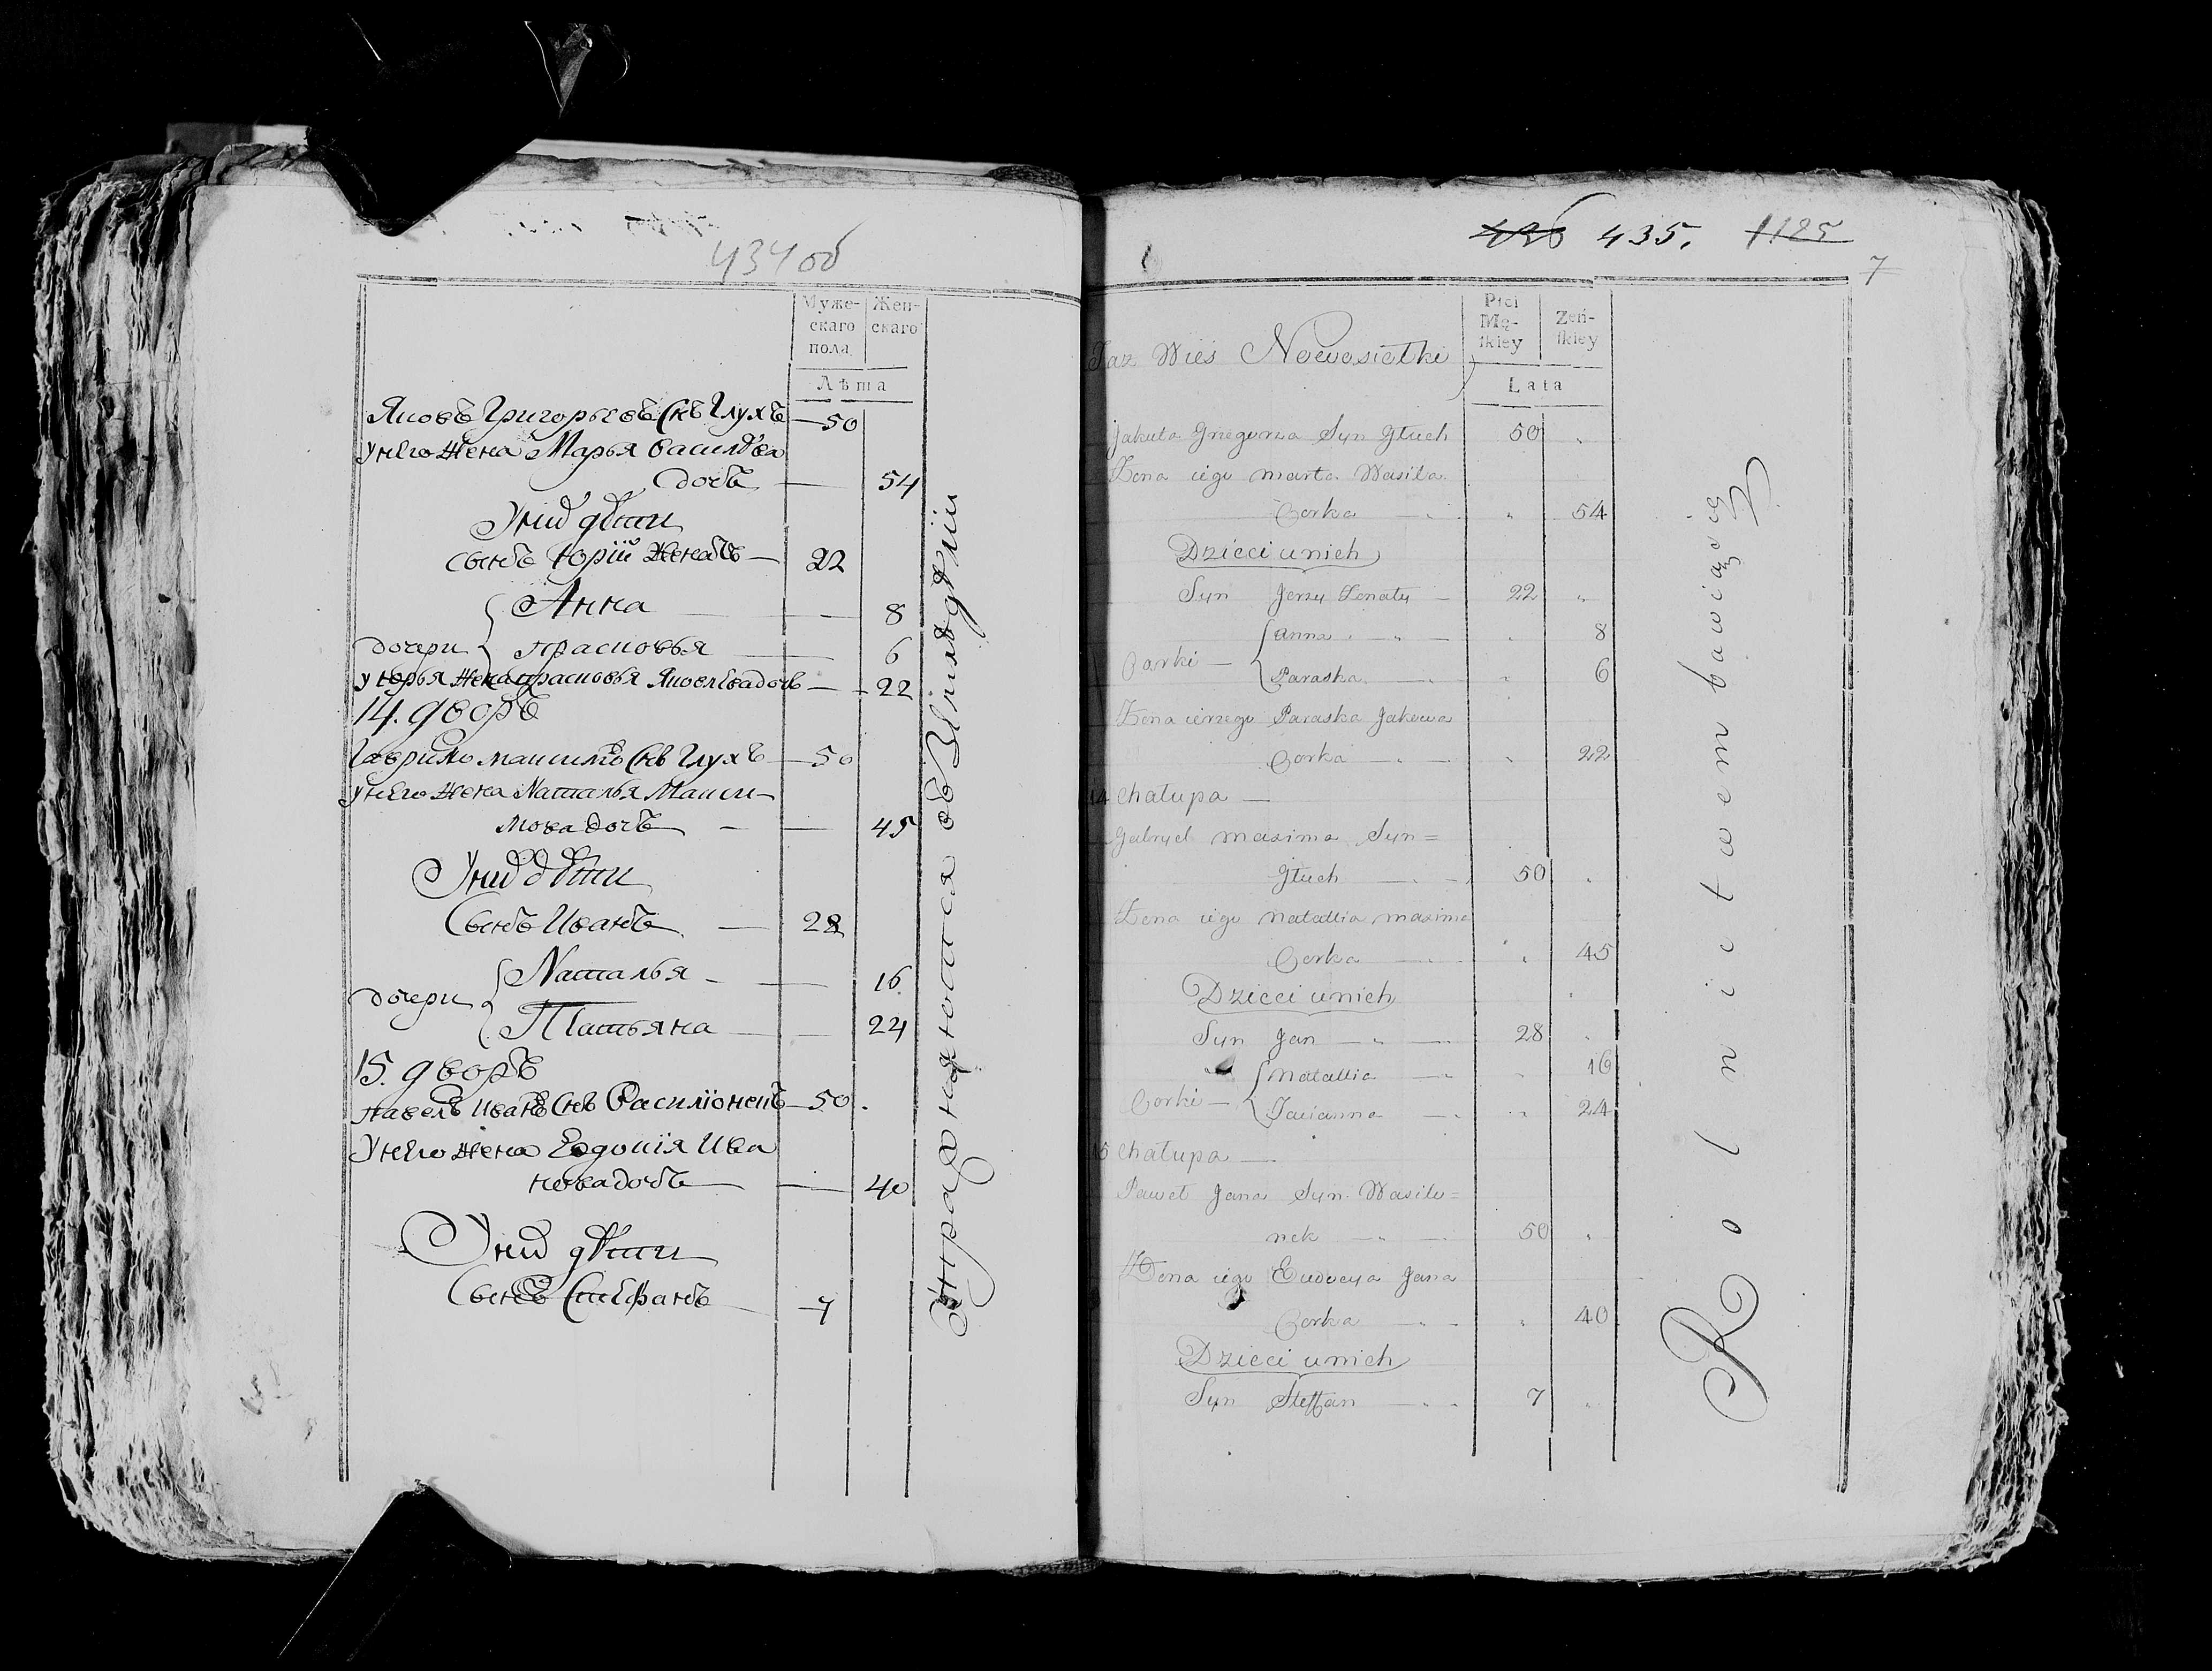 434 об
Муже-
скаго
пола.
Жен-
скаго
Лѣта
Яковъ Григорьевъ Снъ Глухъ — 50
у него жена Марья Василева
дочь — 54
У нихъ дѣти
Сынъ Юрій Женатъ — 22
Анна — 8
дочери
Прасковья — 6
у Юрья жена Прасковья Яковлева дочь — 22
14. дворъ
Гаврило Максимъ Снъ Глухъ — 50
у него жена Наталья Макси-
мова дочь — 45
У нихъ дѣти
Сынъ Иванъ — 28
Наталья — 16
дочери
Татьяна — 24
15. дворъ
Павелъ Иванъ Снъ Василіонекъ — 50
У него жена Евдокія Ива
нова дочь — 40
У нихъ дѣти
Сынъ Стефанъ — 7
436 435. 1125
7
Taz Wieś Nowosiełki
Płci
Mę-
skiey
Żeń-
skiey
Lata
Jakuta Grzegorza Syn Głuch 50 "
Żona iego Marta Wasila
Corka — " 54
Dzieci u nich
Syn Jerzy Żonaty — 22 "
Anna — " 8
Corki —
Paraska — " 6
Żona ierzego Paraska Jakowa
Corka — " 22
14 Chałupa —
Gabryel Maxima Syn =
Głuch — 50 "
Żona iego Natallia Maxima
Corka — " 45
Dzieci u nich
Syn Jan — 28 "
Natallia — " 16
Corki —
Tacianna — " 24
15 Chałupa —
Paweł Jana Syn Wasilo =
nek — 50 "
Żona iego Eudocya Jana
Corka — " 40
Dzieci u nich
Syn Steffan — 7 "
Rolnictwem bawią się